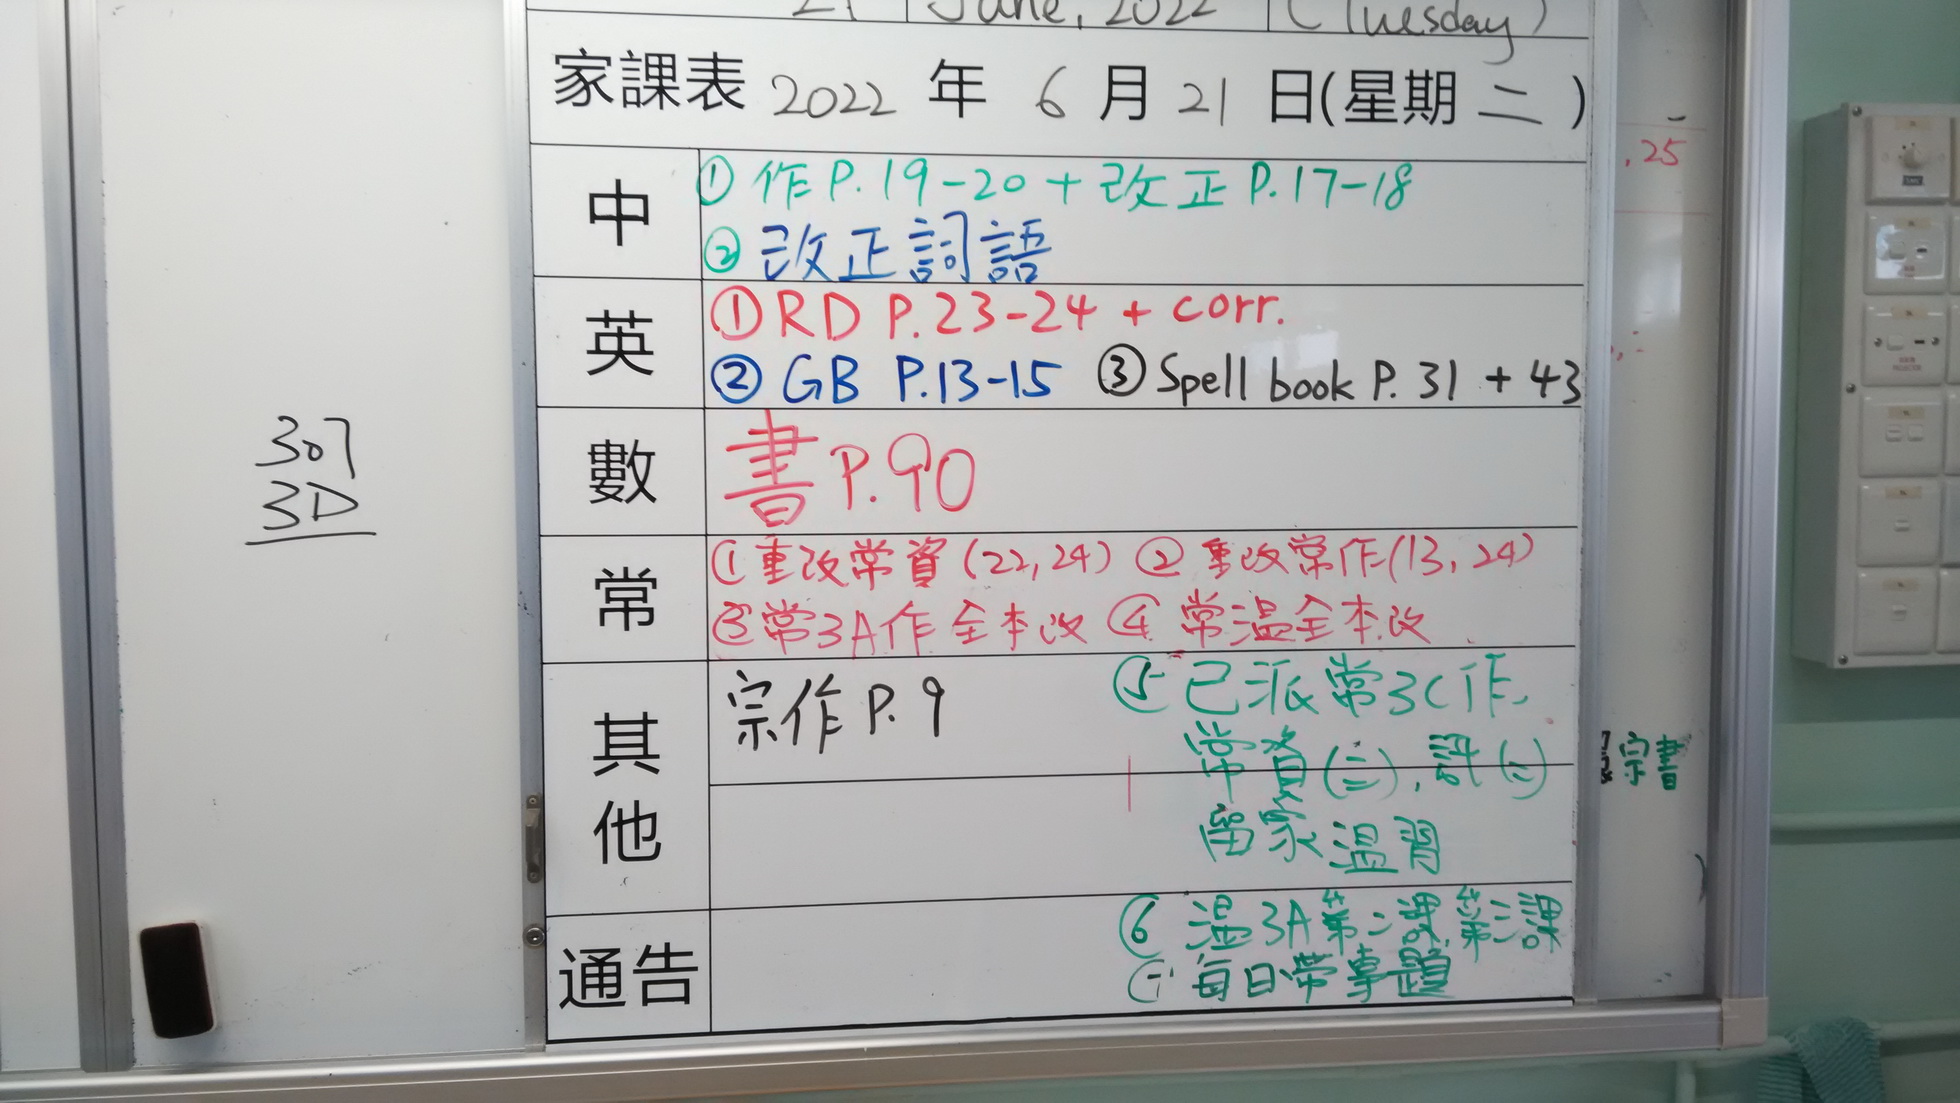 21 June, 2022 (Tuesday)
家課表 2022 年 6 月 21 日(星期 二 )
中
① 作 P.19-20 + 改正 P.17-18
② 改正詞語
英
① RD P.23-24 + corr.
② GB P.13-15 ③ Spell book P. 31 + 43
數
書 P.90
常
① 重改常資 (22,24) ② 重改常作 (13, 24)
③ 常3A作全本改 ④ 常溫全本改
其他
宗作 P.9
⑤ 已派常3C作,
常資(三), 評(二)
留家溫習
通告
⑥ 溫3A第二課,第三課
⑦ 每日帶專題
307
3D
.25
宗書